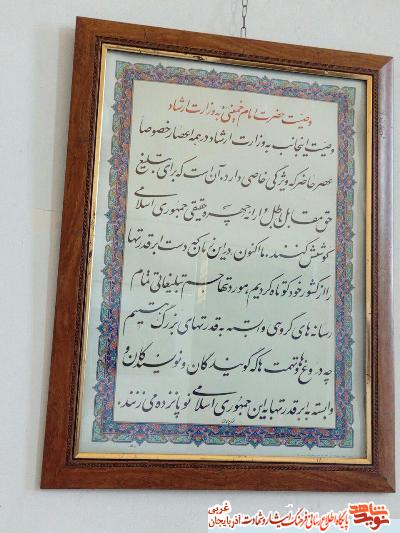 وصیت حضرت امام خمینی به وزارت ارشاد
وصیت اینجانب به وزارت ارشاد در همه اعصار خصوصاً
عصر حاضر که ویژگی خاصی دارد، آن است که برای تبلیغ
حق مقابل باطل و ارائه چهره حقیقی جمهوری اسلامی
کوشش کنند. ما اکنون در این زمان که دست ابرقدرتها
را از کشور خود کوتاه کردیم مورد تهاجم تبلیغاتی تمام
رسانه های گروهی وابسته به قدرتهای بزرگ هستیم
چه دروغ ها و تهمت ها که گویندگان و نویسندگان
وابسته به ابرقدرتها به این جمهوری اسلامی نوپا نزده و نمی زنند.
نوید شاهد
پایگاه اطلاع رسانی فرهنگ ایثار و شهادت آذربایجان غربی